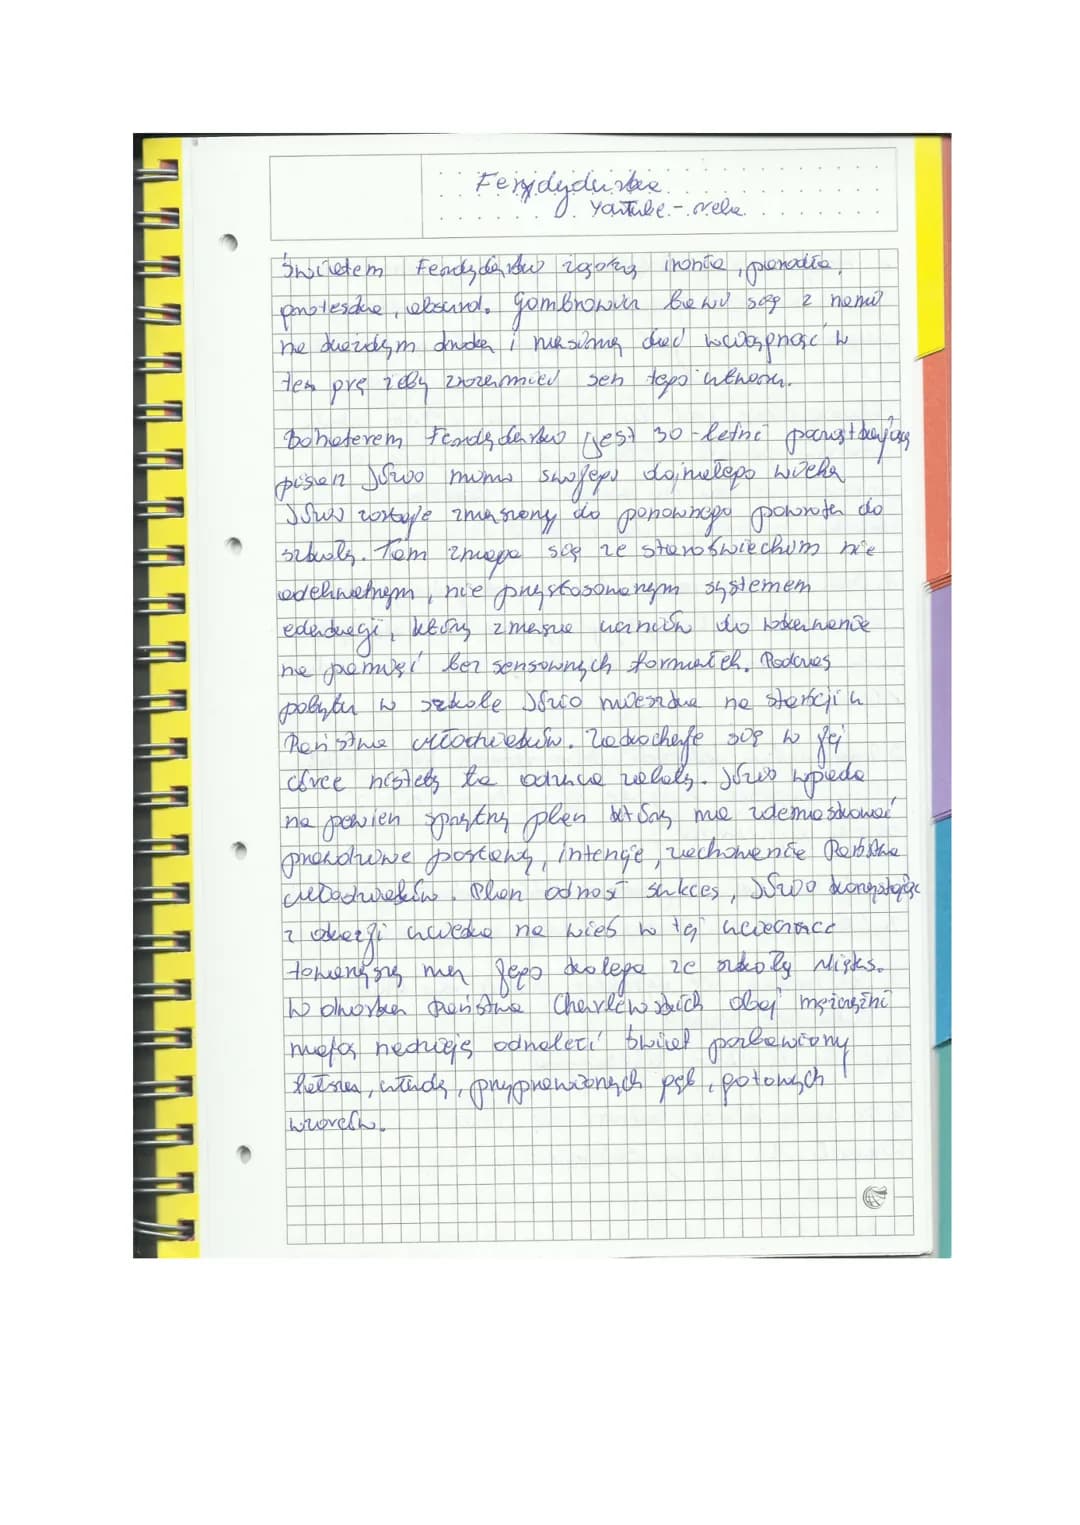 Ferdydurke
Youtube -
Światem Ferdydurke rządzą ironia, parodia,
groteska, absurd. Gombrowicz bawi się z nami
na każdym kroku i musimy dać wciągnąć w
tą grę żeby zrozumieć sen tego utworu.
Bohaterem Ferdydurke jest 30-letni początkujący
pisarz Józio mimo swojego dojrzałego wieku
Józio zostaje zmuszony do ponownego powrotu do
szkoły. Tam zmaga się ze staroświeckim nie
adekwatnym, nie przystosowanym systemem
edukacji, który zmusza uczniów do wkuwania
na pamięć bez sensownych formułek. Podczas
pobytu w szkole Józio mieszka na stancji u
Państwa Młodziaków. Zakochuje się w jej
córce niestety ta odrzuca zaloty. Józio wpada
na pewien sprytny plan który ma zdemaskować
prawdziwe postawy, intencje, zachowanie Państwa
Młodziaków. Plan odnosi sukces, Józio korzystając
z okazji ucieka na wieś w tej ucieczce
towarzyszy mu jego kolega ze szkoły Miętus.
W dworku Państwa obaj mężczyźni
mają nadzieję odnaleźć świat pozbawiony
fałszu, przyprawionych gęb, gotowych
wzorców.